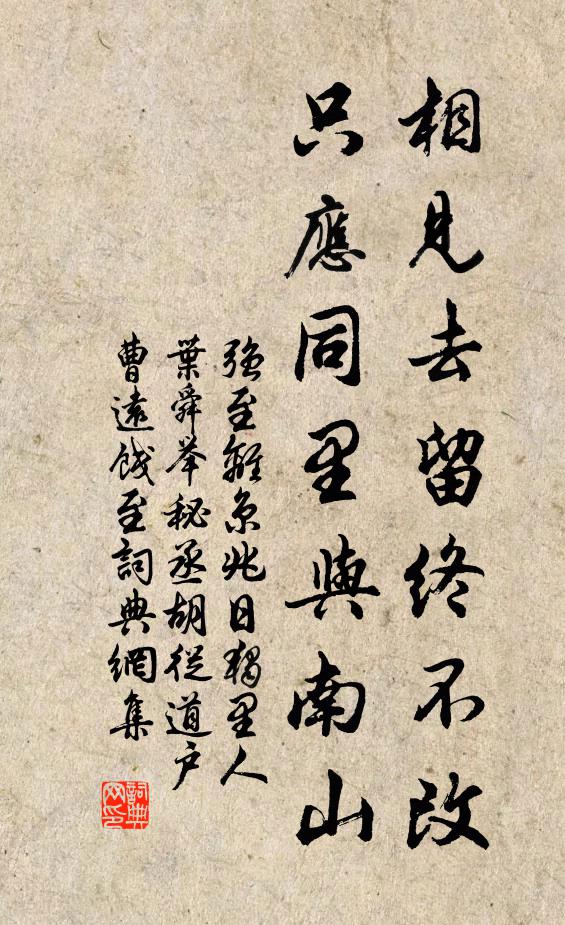 相見去留終不改
只應同里與南山
強至離京兆日獨里人
葉舜舉秘丞胡從道戶
曹遠餞至詞典網集
詞典网印